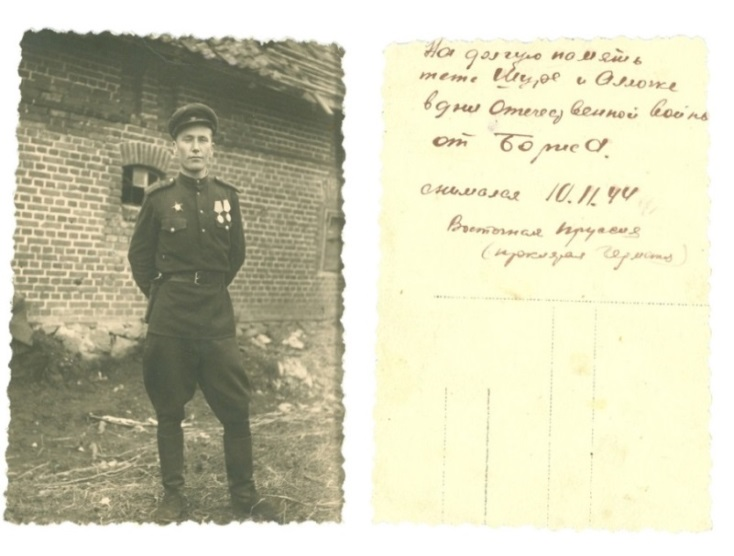 На долгую помять
тете Шуре и Сллоке
в дни Отечественной Войны
от Бориса.
снимался 10.11.44
Восточная Пруссия
(проклятая Германия)